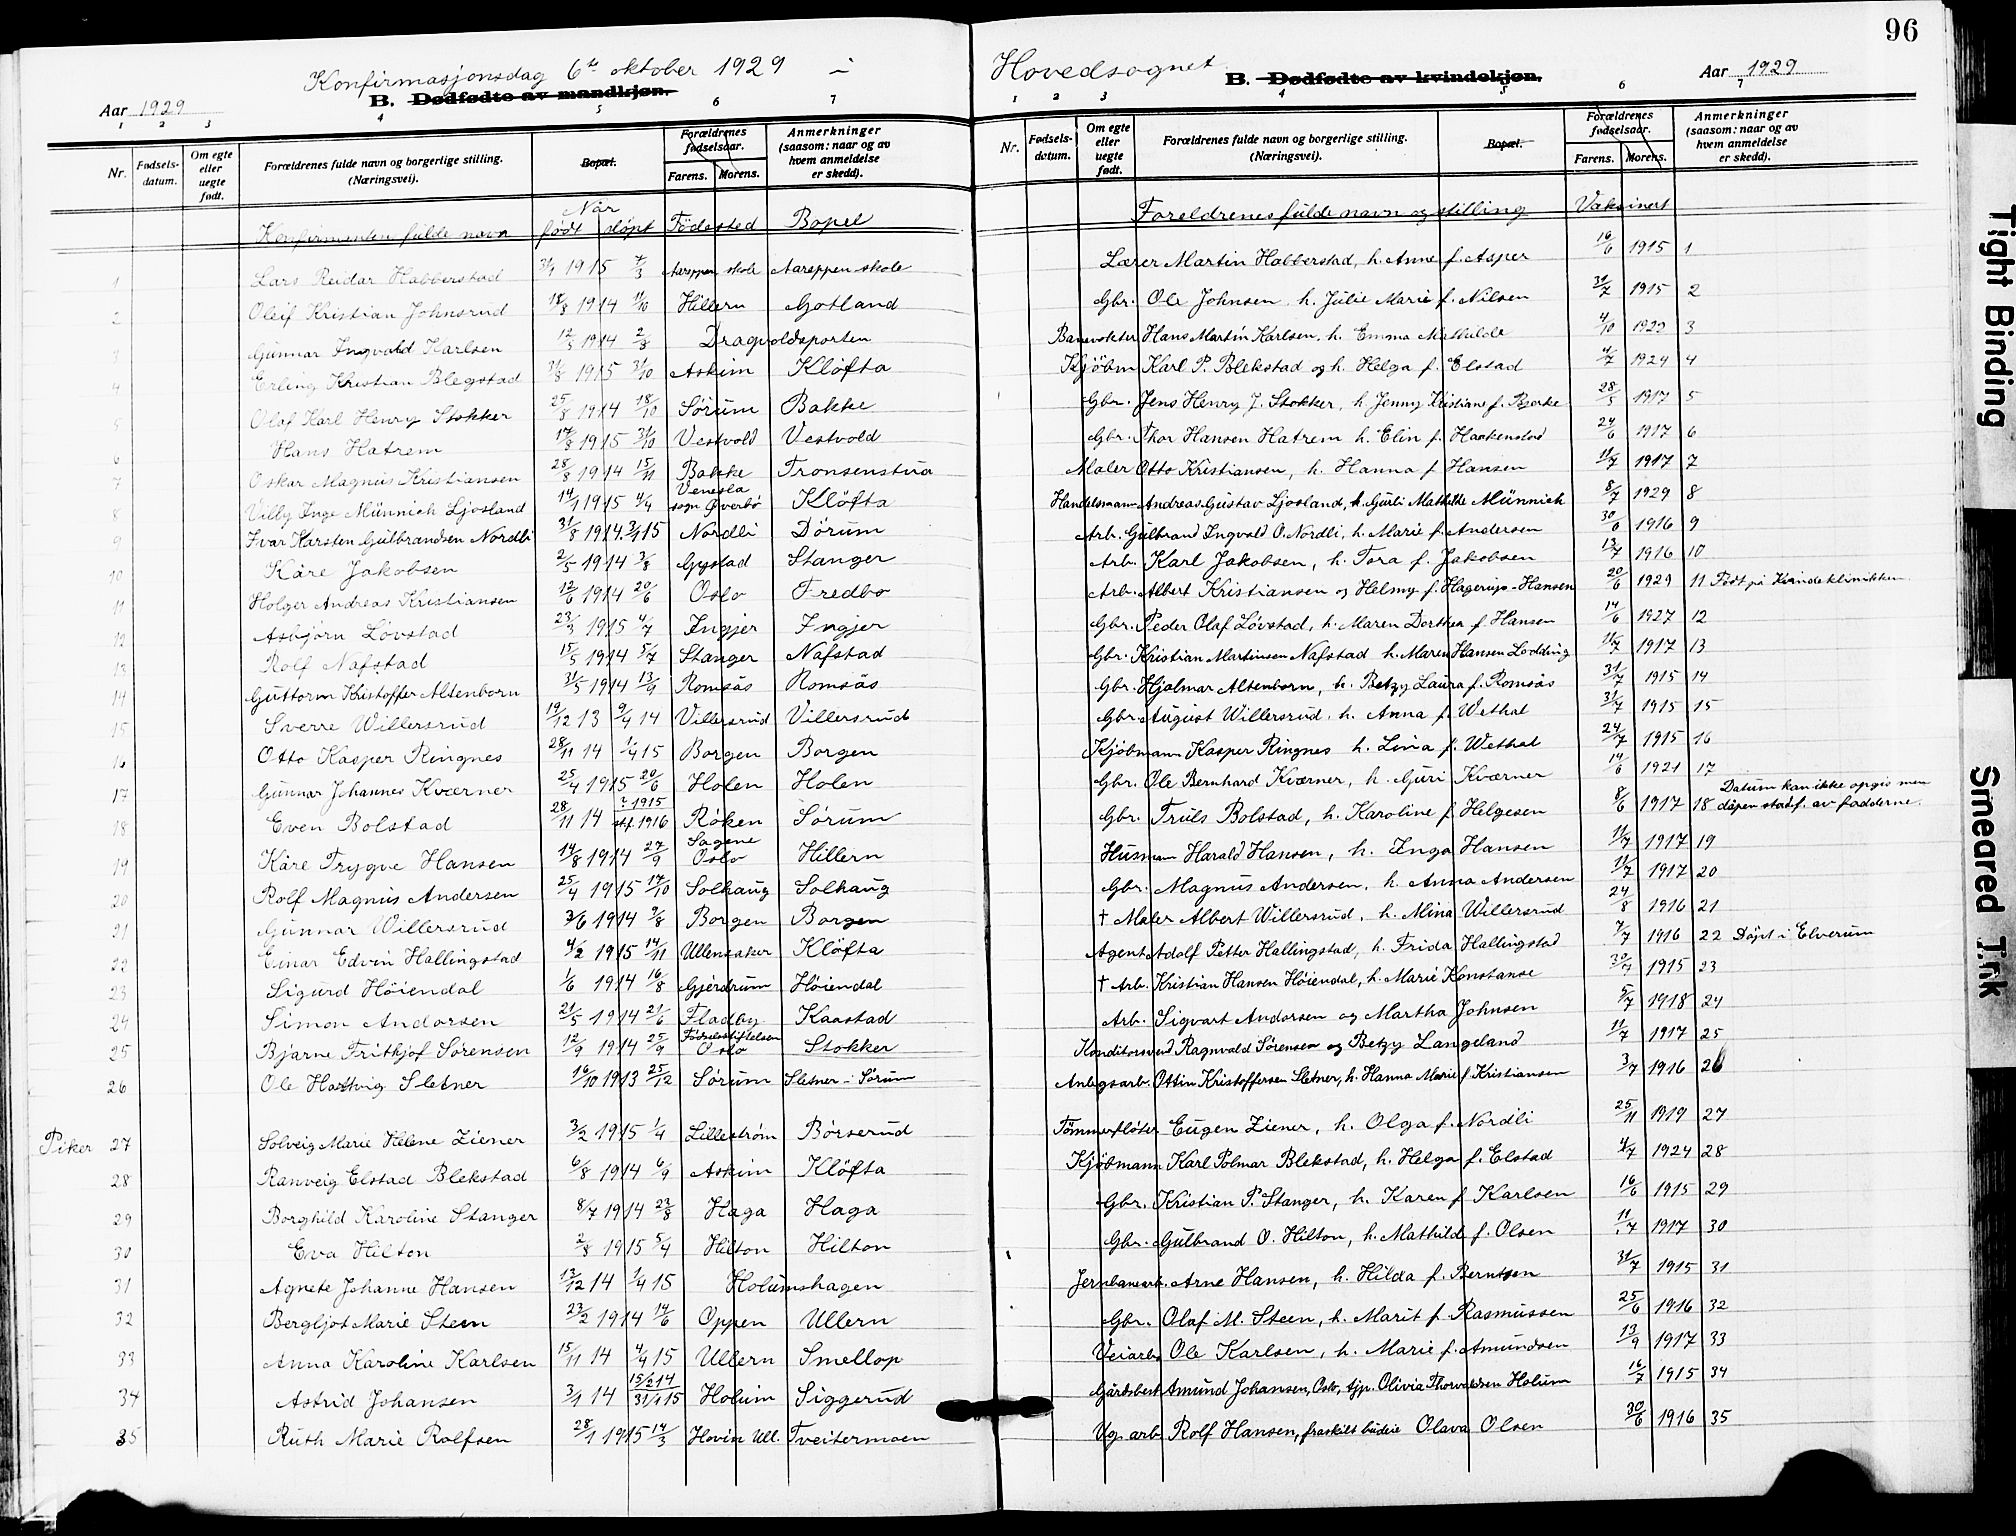 96
Konfirmasjonsdag 6te oktober 1929 i Hovedsognet
Aar 1929 B. Dødfødte av mandkjøn.
B. Dødfødte av kvindekjøn. Aar 1929
1 2 3 4 5 6 7
1 2 3 4 5 6 7
Nr. Fødsels-datum. Om egte eller uegte født. Forældrenes fulde navn og borgerlige stilling. (Næringsvei). Bopæl. Forældrenes fødselsaar. Farens. Morens. Anmerkninger (saasom: naar og av hvem anmeldelse er skedd).
Nr. Fødsels-datum. Om egte eller uegte født. Forældrenes fulde navn og borgerlige stilling. (Næringsvei). Bopæl. Forældrenes fødselsaar. Farens. Morens. Anmerkninger (saasom: naar og av hvem anmeldelse er skedd).
Konfirmantens fulde navn Når født døpt Födested Bopel Foreldrenes fulde navn og stilling Vaksinert
1 Lars Reidar Habberstad 1915 7/3 Aareppen skole Aareppen skole Lærer Martin Habberstad, h. Anne f. Asper 16/6 1915 1
2 Oleif Kristian Johnsrud 18/8 1914 11/10 Hillern Gotland Gbr. Ole Johnsen h. Julie Marie f. Nilsen 31/7 1915 2
Gunnar Ingvald Karlsen 12/5 1914 2/8 Dragvoldsporten Banevokter Hans Martin Karlsen, h. Emma Mathilde 4/10 1929 3
4 Erling Kristian Blegstad 31/8 1915 31/10 Askim Kløfta Kjøbm Karl P. Blekstad og h. Helga f. Elstad 4/7 1924 4
5 Olaf Karl Henry Stokker 25/8 1914 18/10 Sørum Bakke Gbr. Jens Henry J. Stokker, h. Jenny Kristiane f. Bjerke 28/5 1917 5
6 Hans Hatrem 17/8 1915 31/10 Vestvold Vestvold Gbr. Thor Hansen Hatrem h. Elin f. Haakenstad 24/6 1917 6
7 Oskar Magnus Kristiansen 28/8 1914 15/11 Bakke Tronsenstua Maler Otto Kristiansen, h. Hanna f Hansen 11/7 1917 7
8 Villy Inge Münnich Ljosland 14/1 1915 4/4 Venesla sogn Øverbø Kløfta Handelsmann Andreas Gustav Ljosland, h. Gurli Mathilde Münnich 8/7 1929 8
9 Ivar Karsten Gulbrandsen Nordli 31/8 1914. 3/1 15 Nordli Dørum Arb. Gulbrand Ingvald O. Nordli, h. Marie f. Andersen 30/6 1916 9
10 Kåre Jakobsen 2/5 1914 3/8 Gystad Stanger Arb. Karl Jakobsen, h. Tora f. Jakobsen 13/7 1916 10
11 Holger Andreas Kristiansen 12/6 1914 20/6 Oslo Fredbo Arb. Albert Kristiansen og Helmy f. Hagerups-Hansen 20/6 1929 11 Født på Kvindeklinikken
12 Asbjørn Lövstad 23/3 1915 4/7 Ingjer Ingjer Gbr. Peder Olaf Lövstad, h. Maren Dorthea f. Hansen 14/6 1927 12
13 Rolf Nafstad 15/5 1914 5/7 Stanger Nafstad Gbr. Kristian Martinsen Nafstad h. Maren Hansen Lodding 11/7 1917 13
14 Guttorm Kristoffer Altenborn 31/5 1914 13/9 Romsås Romsås Gbr. Hjalmar Altenborn, h. Betzy Laura f. Romsås 31/7 1915 14
15 Sverre Willersrud 19/12 13 9/4 14 Villersrud Villersrud Gbr. August Willersrud, h. Anna f. Wethal 31/7 1915 15
16 Otto Kasper Ringnes 28/11 14 1/4 15 Borgen Borgen Kjøbmann Kasper Ringnes h. Lina f. Wethal 24/7 1915 16
17 Gunnar Johannes Kværner 25/4 1915 20/6 Holen Holen Gbr. Ole Bernhard Kværner, h. Guri Kværner 14/6 1921 17
18 Even Bolstad 28/11 14 ? 1915 stf. 1916 Røken Sørum Gbr. Truls Bolstad, h. Karoline f Helgesen 8/6 1917 18 Datum kan ikke opgis men dåpen stadf. av fadderne.
19 Kåre Trygve Hansen 14/8 1914 27/9 Sagene Oslo Hillern Husmann Harald Hansen, h. Inga Hansen 11/7 1917 19
20 Rolf Magnus Andersen 25/4 1915 17/10 Solhaug Solhaug Gbr. Magnus Andersen, h. Anna Andersen 11/7 1917 20
21 Gunnar Willersrud 3/6 1914 9/8 Borgen Borgen † Maler Albert Willersrud, h. Mina Willersrud 24/8 1916 21
22 Einar Edvin Hallingstad 4/2 1915 14/11 Ullensaker Kløfta Agent Adolf Petter Hallingstad, h. Frida Hallingstad 7/7 1916 22 Døpt i Elverum
23 Sigurd Høiendal 1/6 1914 16/8 Gjerdrum Høiendal † Arb. Kristian Hansen Høiendal, h. Marie Konstanse 30/7 1915 23
24 Simon Andorsen 21/5 1914 21/6 Fladby Kaastad Arb. Sigvart Andorsen og Martha Johnsen 5/7 1918 24
25 Bjarne Frithjof Sørensen 12/9 1914 25/9 Fødselsstiftelsen Oslo Stokker Konditorsvend Ragnvald Sørensen og Betzy Langeland 11/7 1917 25
26 Ole Hartvig Sletner 16/10 1913 25/12 Sørum Sletner i Sørum Anlegsarb. Ottin Kristoffersen Sletner, h. Hanna Marie f. Kristiansen 3/7 1916 26
Piker 27 Solveig Marie Helene Ziener 3/2 1915 1/4 Lillestrøm Börserud Tømmerfløter Eugen Ziener, h. Olga f. Nordli 25/11 1919 27
28 Ranveig Elstad Blekstad 6/8 1914 6/9 Askim Kløfta Kjøbmann Karl Polmar Blekstad, h. Helga f. Elstad 4/7 1924 28
29 Borghild Karoline Stanger 8/7 1914 23/8 Haga Haga Gbr. Kristian P. Stanger, h. Karen f. Karlsen 16/6 1915 29
30 Eva Hilton 2/3 1915 5/4 Hilton Hilton Gbr. Gulbrand O. Hilton, h. Mathild f. Olsen 11/7 1917 30
31 Agnete Johanne Hansen 13/12 14 1/4 15 Holumshagen Jernbanearb. Arne Hansen, h. Hilda f. Berntsen 31/7 1915 31
32 Bergljot Marie Steen 23/2 1914 14/6 Oppen Ullern Gbr. Olaf M. Steen, h. Marit f. Rasmussen 25/6 1916 32
33 Anna Karoline Karlsen 15/11 14 4/4 15 Ullern Smellop Veiarb. Ole Karlsen, h. Marie f. Amundsen 13/9 1917 33
34 Astrid Johansen 3/1 14 15/2 14 31/1 15 Holum Siggerud Gårdsbest Amund Johansen, Oslo, tjp. Olivia Thorvaldsen Holum 16/7 1915 34
35 Ruth Marie Rolfsen 28/1 1915 14/3 Hovin Ull. Tveitermoen Vg. arb Rolf Hansen, fraskilt budeie Olava Olsen 30/6 1916 35
Tight Binding
Smeared Ink